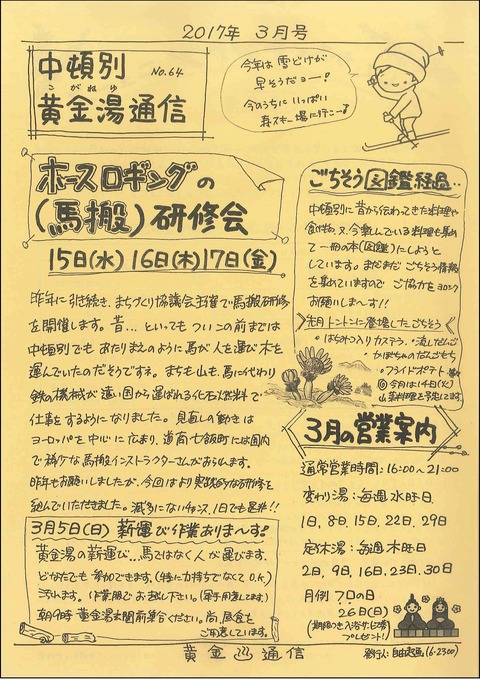 2017年 3月号
中頓別 No.64
こがねゆ
黄金湯通信
今年は雪どけが
早そうだヨー!
今のうちにいっぱい
寿スキー場に行こー♪
ホースロギングの
(馬搬)研修会
15日(水) 16日(木) 17日(金)
昨年に引き続き、まちづくり協議会主催で馬搬研修
を開催します。昔…といっても ついこの前までは
中頓別でも あたりまえのように馬が人を運び木を
運んでいたのだそうですネ。まちも山も、馬にかわり
鉄の機械が遠い国から運ばれる化石燃料で
仕事をするようになりました。見直しの動きは
ヨーロッパを中心に広まり、道南七飯町には国内
で稀少な馬搬インストラクターさんがおられます。
昨年もお願いしましたが、今回はより実践的な研修を
組んでいただきました。滅多にないチャンス、1日でも是非!!
3月5日(日) 薪運び作業ありまーす。
黄金湯の薪運び…馬ではなく人が運びます。
どなたでも参加できます。(特に力持ちでなくてO.K.)
汚れます。(作業服でお越し下さい。(軍手用意してます)
朝9時 黄金湯玄関前集合ください。尚、昼食も
ご用意しています。
ごちそう図鑑経過‥
中頓別に昔から伝わってきた料理や
食べ物、又、今親しんでいる料理も集め
て一冊の本(図鑑)にしようと
しています。まだまだ ごちそう情報
を集めていますので ご協力をヨロシク
お願いしまーす!!
先月トントンに登場したごちそう
・はちみつ入りカステラ ・流しだんご
・かぼちゃのだんごもち
・フライドポテト
◎今月は14日(火)
山菜料理を予定してます
3月の営業案内
通常営業時間:16:00〜21:00
変わり湯:毎週水曜日
1日、8日、15日、22日、29日
定休湯:毎週木曜日
2日、9日、16日、23日、30日
月例 フロの日
26日(日)
(期限つき入浴サービス券
プレゼント!)
黄金湯通信
発行人:自由空間(6-2300)